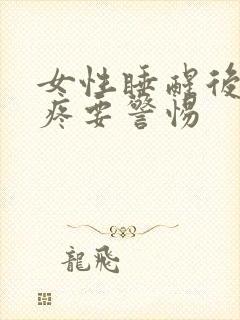 女性睡醒後
疼要警惕
龍飛